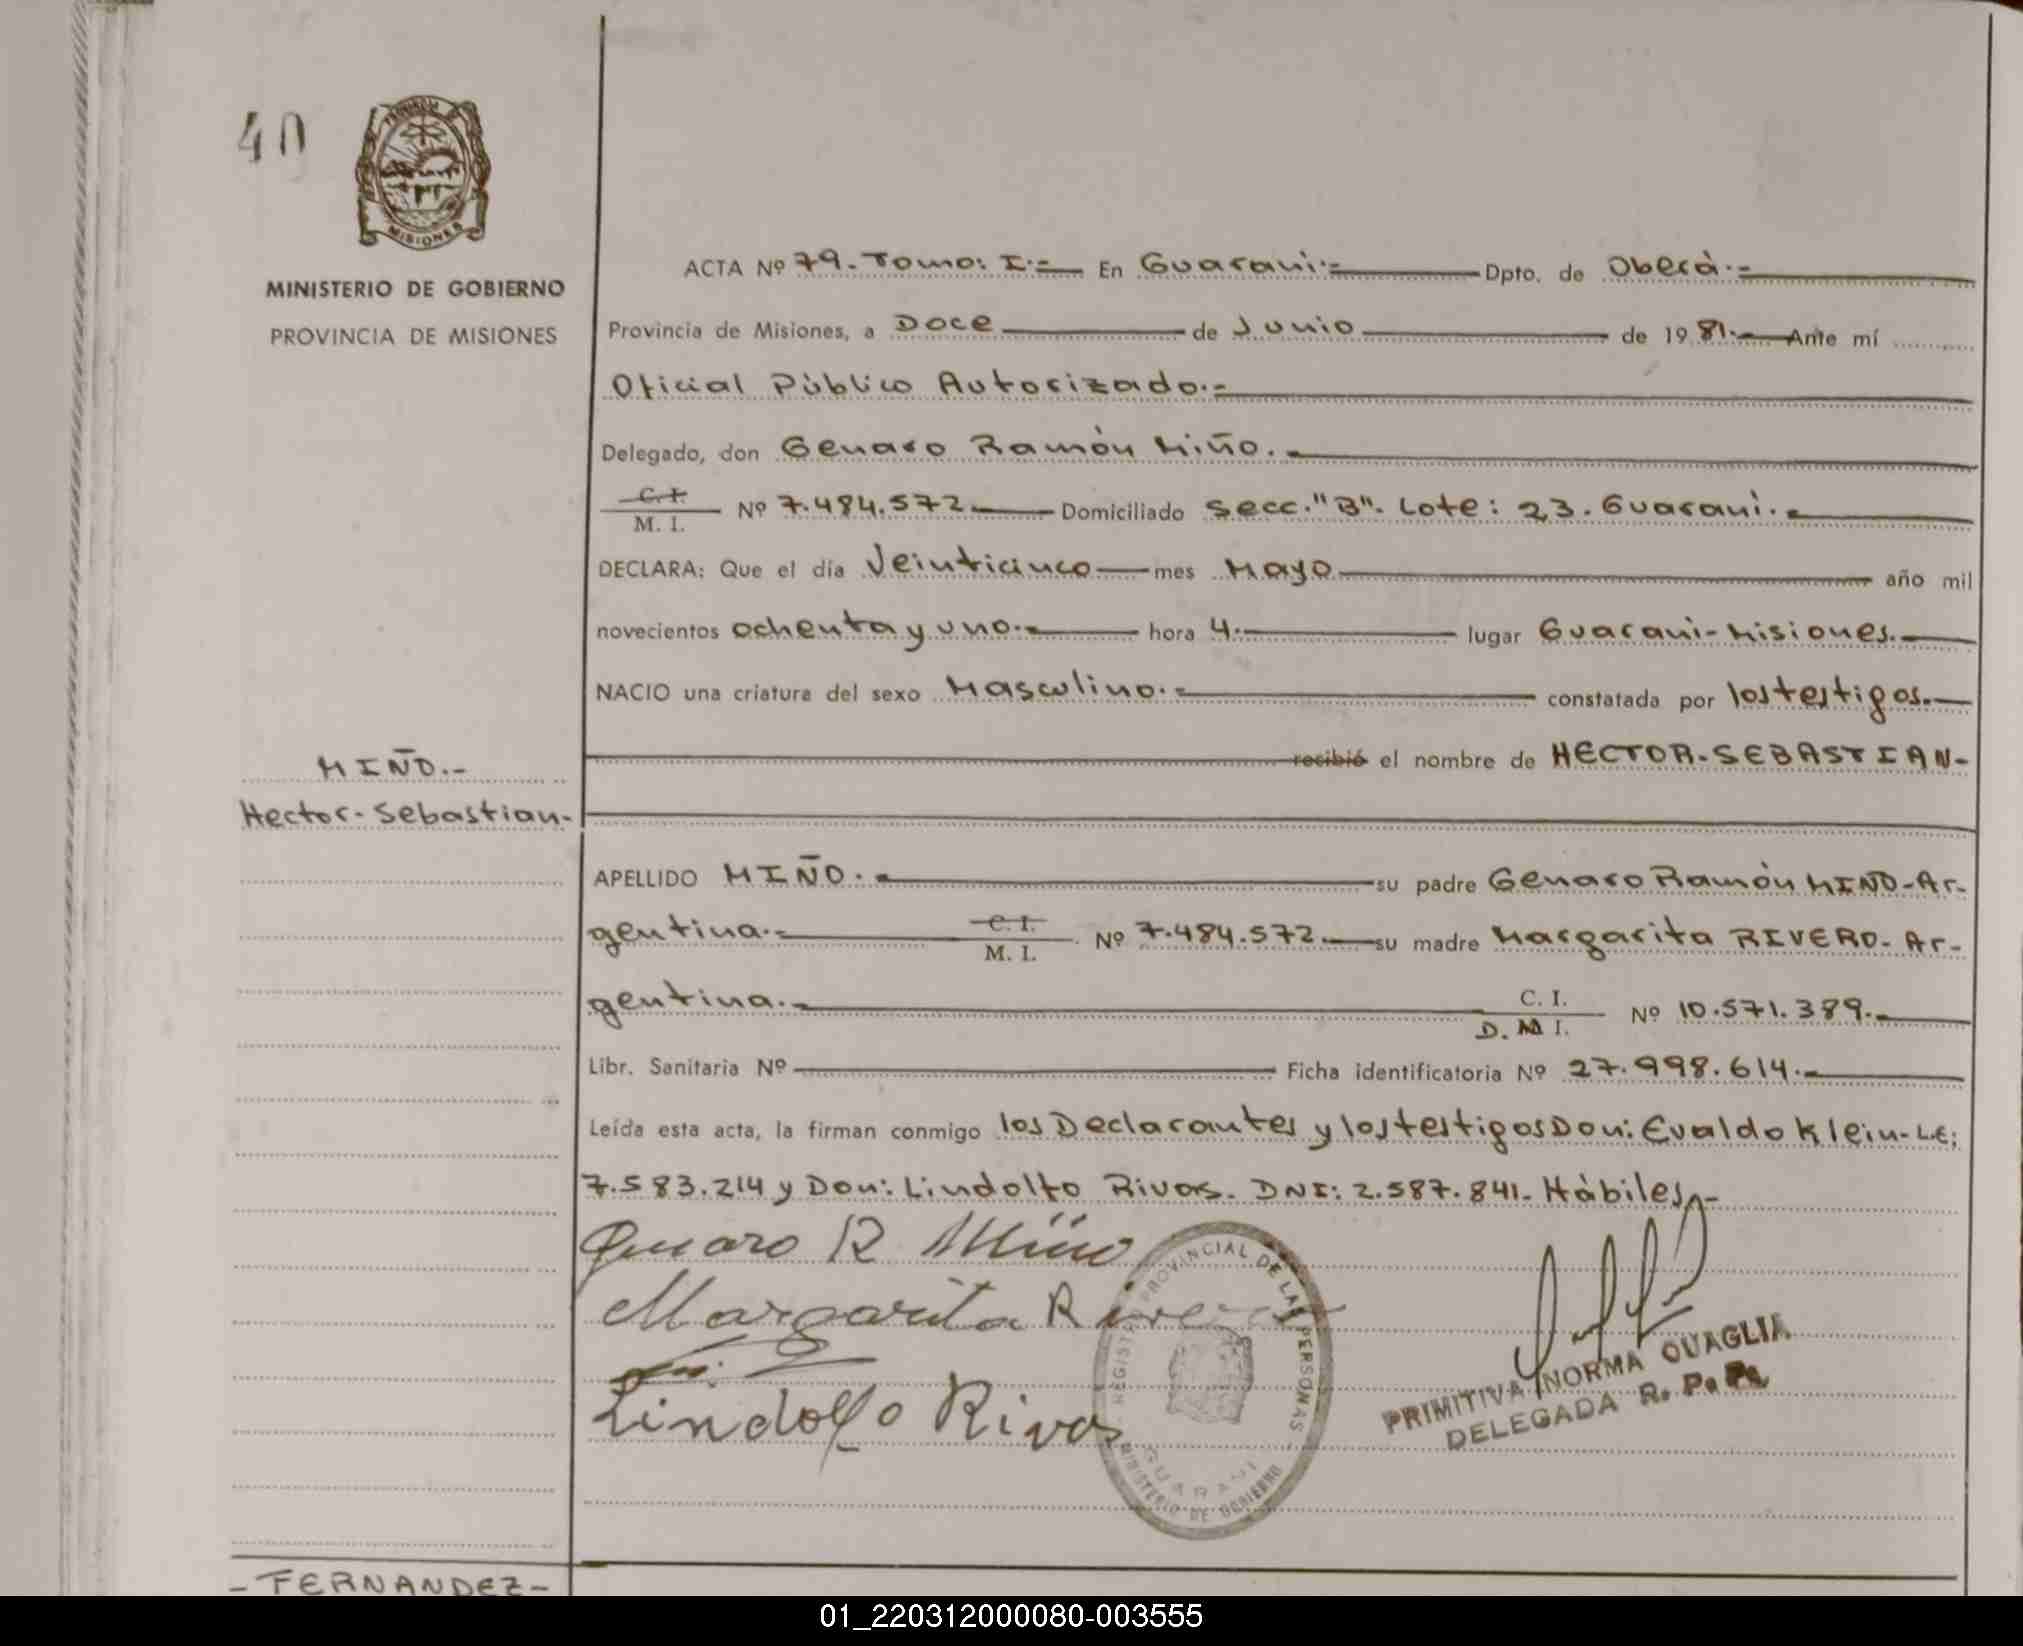 40
PROVINCIA
MISIONES
MINISTERIO DE GOBIERNO
PROVINCIA DE MISIONES
ACTA Nº 79. Tomo: I.- En Guaraní.- Dpto. de Oberá.-
Provincia de Misiones, a Doce de Junio de 1981.- Ante mí
Oficial Público Autorizado.-
Delegado, don Genaro Ramón Miño.-
C.I.
M. I. Nº 7.484.572 Domiciliado Secc. "B". Lote: 23. Guaraní.-
DECLARA: Que el día Veinticinco mes Mayo año mil
novecientos ochenta y uno.- hora 4.- lugar Guaraní-Misiones.-
NACIO una criatura del sexo Masculino.- constatada por los testigos.-
recibió el nombre de HECTOR-SEBASTIAN-
MIÑO.-
Hector-Sebastian-
APELLIDO MIÑO.- su padre Genaro Ramón MIÑO-Ar-
gentina.- C. I.
M. I. Nº 7.484.572.- su madre Margarita RIVERO-Ar-
gentina.- C. I.
D. N I. Nº 10.571.389.-
Libr. Sanitaria Nº Ficha identificatoria Nº 27.998.614.-
Leída esta acta, la firman conmigo los Declarantes y los testigos Don: Evaldo Klein-L.E:
7.583.214 y Don: Lindolfo Rivas. DNI: 2.587.841. Hábiles.-
Genaro R Miño
Margarita Rivero
Lindolfo Rivas
REGISTRO PROVINCIAL DE LAS PERSONAS
GUARANI
MINISTERIO DE GOBIERNO
PRIMITIVA NORMA QUAGLIA
DELEGADA R. P. P.
-FERNANDEZ-
01_220312000080-003555